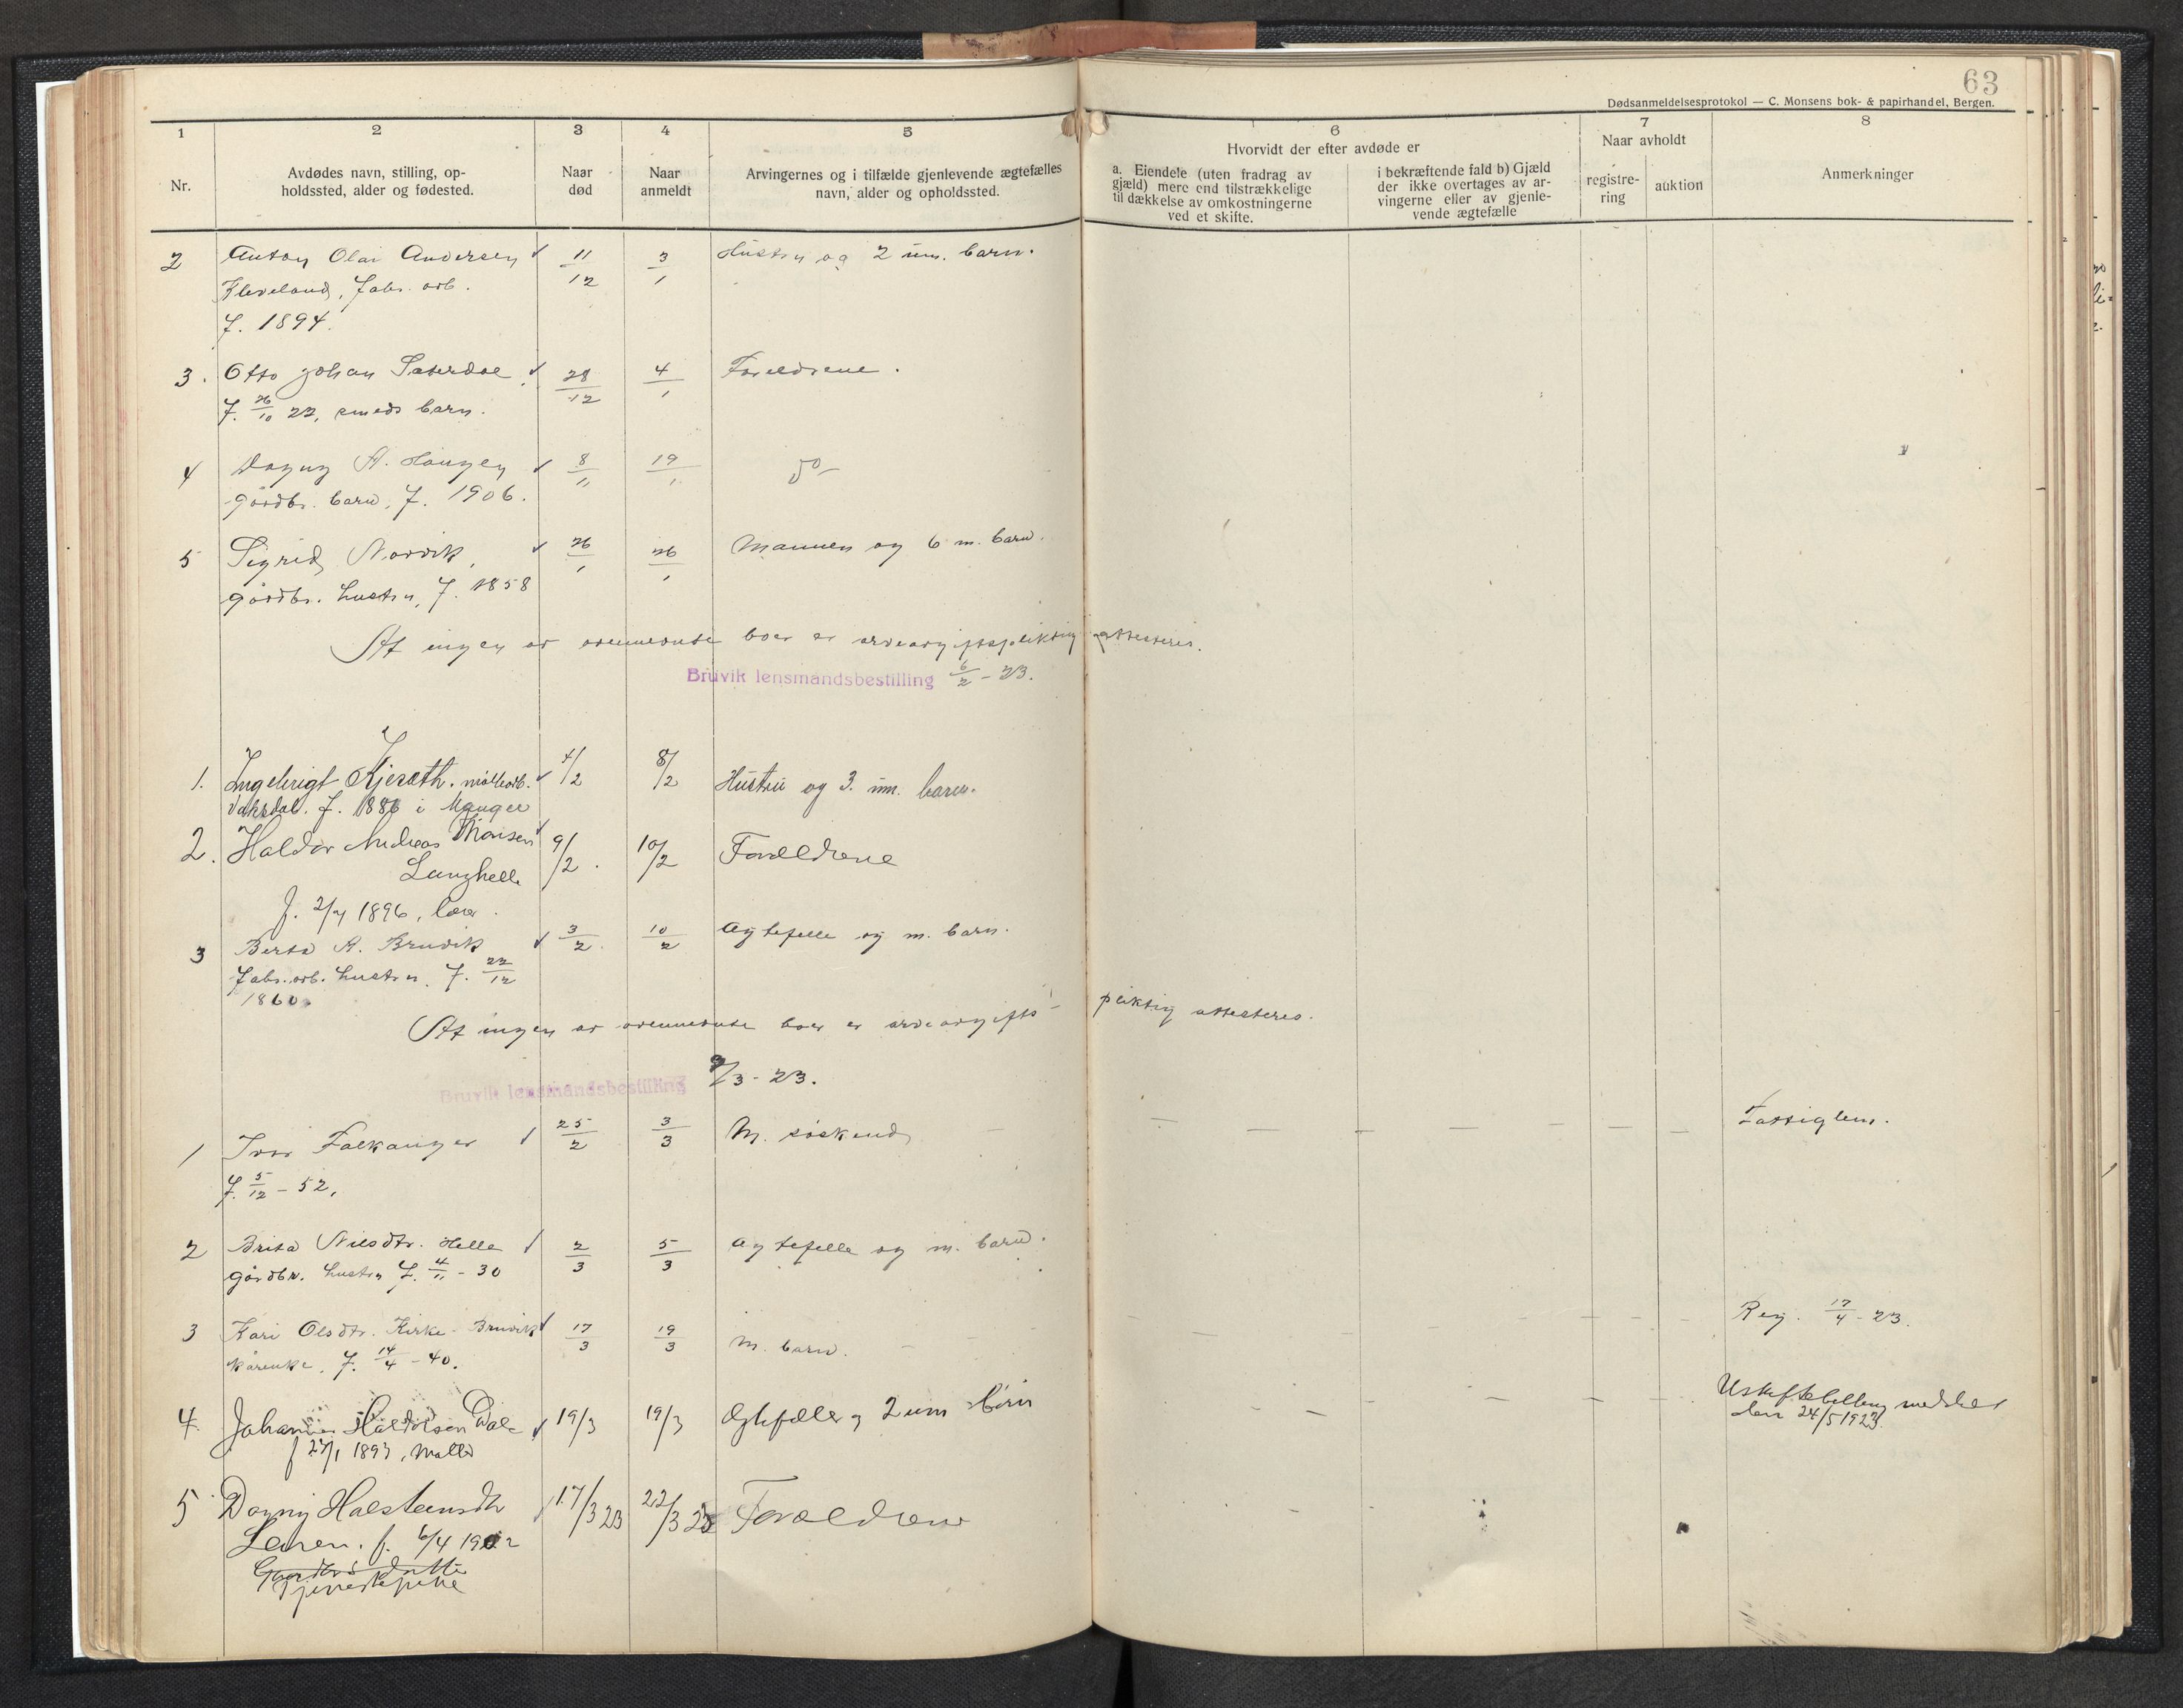 63
Dødsanmeldelsesprotokol — C. Monsens bok- & papirhandel, Bergen.
1 2 3 4 5 6 7 8
Nr.
Avdødes navn, stilling, op-
holdssted, alder og fødested.
Naar
død
Naar
anmeldt
Arvingernes og i tilfælde gjenlevende ægtefælles
navn, alder og opholdssted.
Hvorvidt der efter avdøde er
a. Eiendele (uten fradrag av
gjæld) mere end tilstrækkelige
til dækkelse av omkostningerne
ved et skifte.
i bekræftende fald b) Gjæld
der ikke overtages av ar-
vingerne eller av gjenle-
vende ægtefælle
Naar avholdt
registre-
ring
auktion
Anmerkninger
2 Anton Olai Andersen 11/12 3/1 Hustru og 2 um. barn.
Fleveland, fabr. arb.
f. 1894.
3. Otto Johan Sæterdal 28/12 4/1 Foreldrene.
f. 26/10 22, smeds barn.
4 Dagny A. Haugen 8/11 19/1 Do
gårdbr. barn, f. 1906.
5 Sigrid Norvik, 26/1 26/1 Mannen og 6 m. barn.
gårdbr. hustru, f. 1858
At ingen av ovennevnte boer er arveavgiftspliktig attesteres.
Bruvik lensmandsbestilling 6/2 - 23.
1. Ingebrigt Kjesæth. møllearb. 4/2 8/2 Hustru og 3. um. barn.
Vaksdal. f. 1886 i Manger
2. Haldor Andreas Monsen 9/2. 10/2 Forældrene
Langhelle
f. 2/7 1896, lærer.
3 Berta A. Bruvik 3/2. 10/2 Agtefelle og m. barn.
fabr. arb. hustru, f. 22/12
1860.
At ingen av ovennevnte boer er arveavgifts- pliktig attesteres.
Bruvik lensmandsbestilling 9/3 - 23.
1 Ivar Falkanger 25/2 3/3 M. søskend Fattiglem.
f. 5/12 - 52.
2 Brita Nilsdtr. Helle 2/3 5/3 Agtefelle og m. barn.
gårdbr. hustru f. 4/11 - 30
3 Kari Olsdtr. Kirke-Bruvik 17/3 19/3 M. barn. Reg. 17/4 - 23.
kårenke, f. 14/4 - 40.
4. Johannes Haldorsen Dale 19/3 19/3 Ægtefælle og 2 um børn Uskiftebevilling meddelt
f 27/1 1893, Møller den 24/5 1923.
5 Dagny Halsteinsdtr 17/3 23 22/3 23 Forældrene
Leiren. f. 6/4 1902
Gaardbrs datter
Tjenestepike